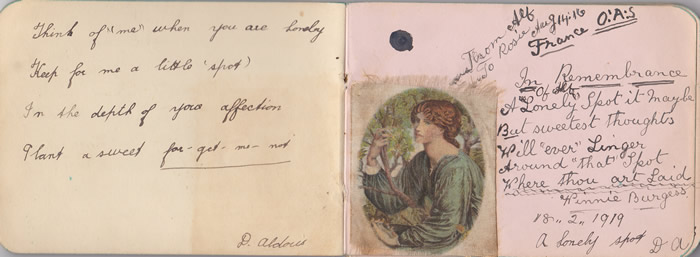 Think of "me" when you are lonely
Keep for me a little 'spot'
In the depth of your affection
Plant a sweet for-get-me-not
D. Aldous
From Alf
To Rosie Aug 14.16
France O.A.S
In Remembrance
Of Alf
A Lonely Spot it maybe
But sweetest thoughts
Will "ever" Linger
Around "that" Spot
Where thou art Laid
Winnie Burgess
18.,2,,1919
A lonely spot D A